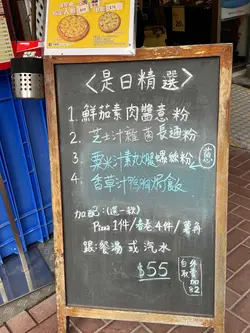 <是日精選>
1. 鮮茄素肉醬意粉
2. 芝士汁雜菌長通粉
3. 粟米汁素丸腿螺絲粉
4. 香草汁鴨胸焗飯
加配：(選一款)
Pizza 1件/香卷 4件/薯角
跟：餐湯 或 汽水
$55
自取
外賣加$2